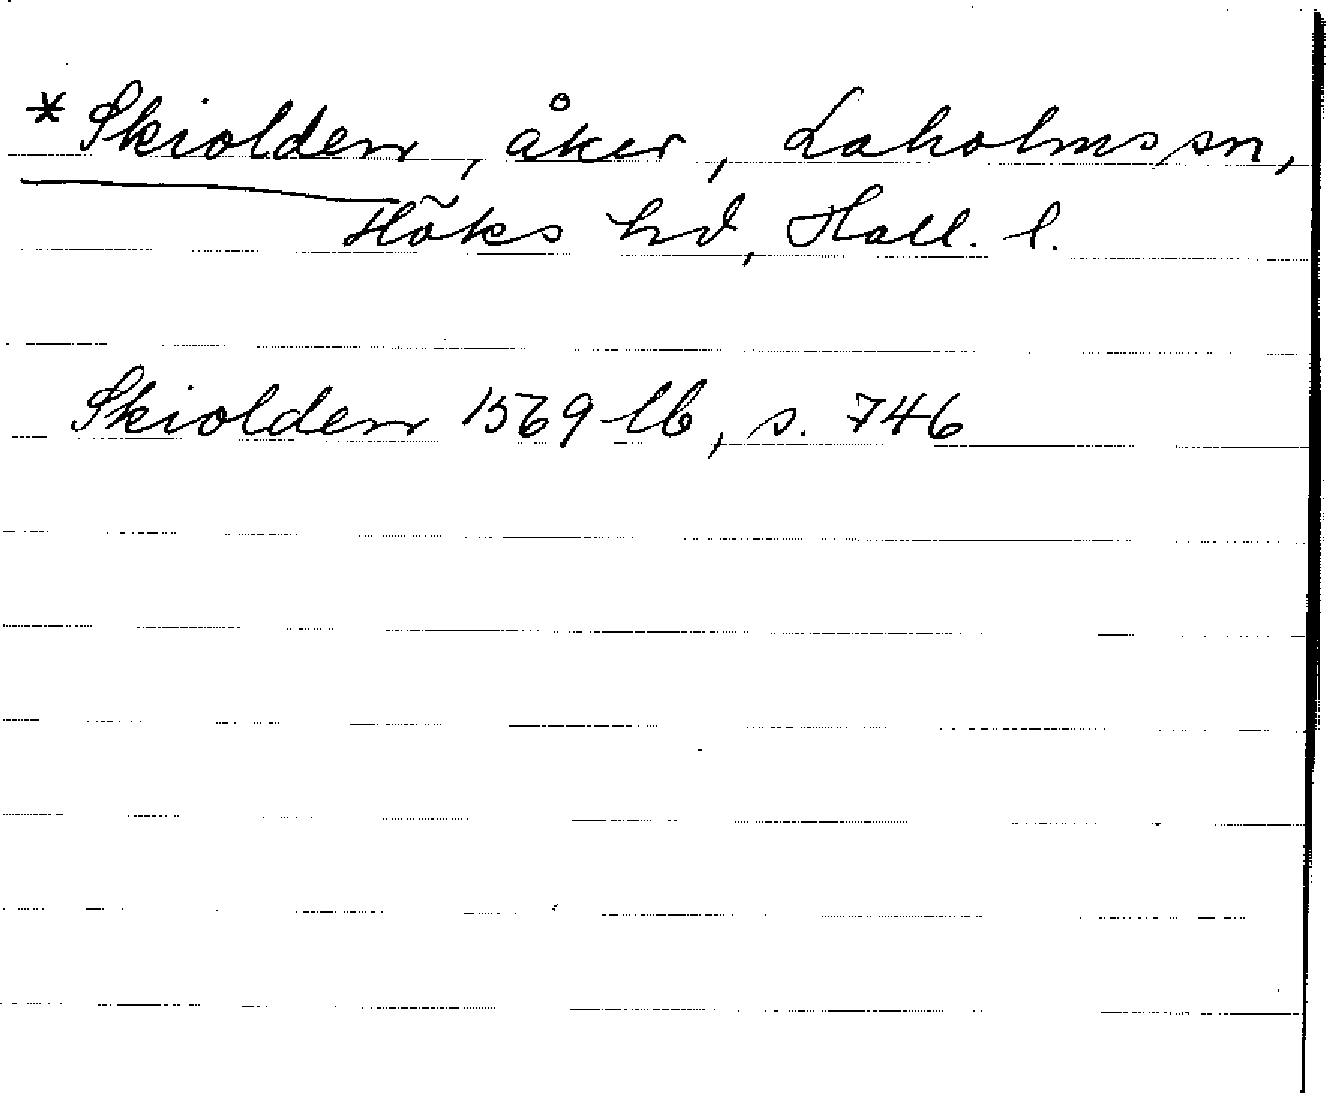 *Skiolden, åker, Laholms sn,
Höks hd, Hall. l.
Skiolden 1569 lb, s. 746